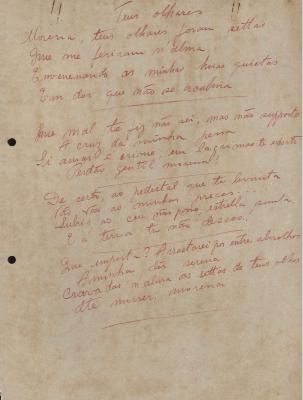 Teus olhares
Morena, teus olhares foram settas
Que me feriram n'alma,
Envenenando as minhas horas quietas
Em dor que não se acalma
Que mal te fiz não sei, mas não supporto
A cruz da minha pena
Si amar é crime, em lagrimas te
Perdão gentil morena!
De certo, ao pedestal que te levanta
Não vão as minhas preces...
Subir ao céu não posso, estrella santa
E á terra tu não desces.
Que importa? Arrastarei por entre abrolhos
A minha dôr serena
Cravadas n'alma as settas de teus olhos
Até morrer, morena